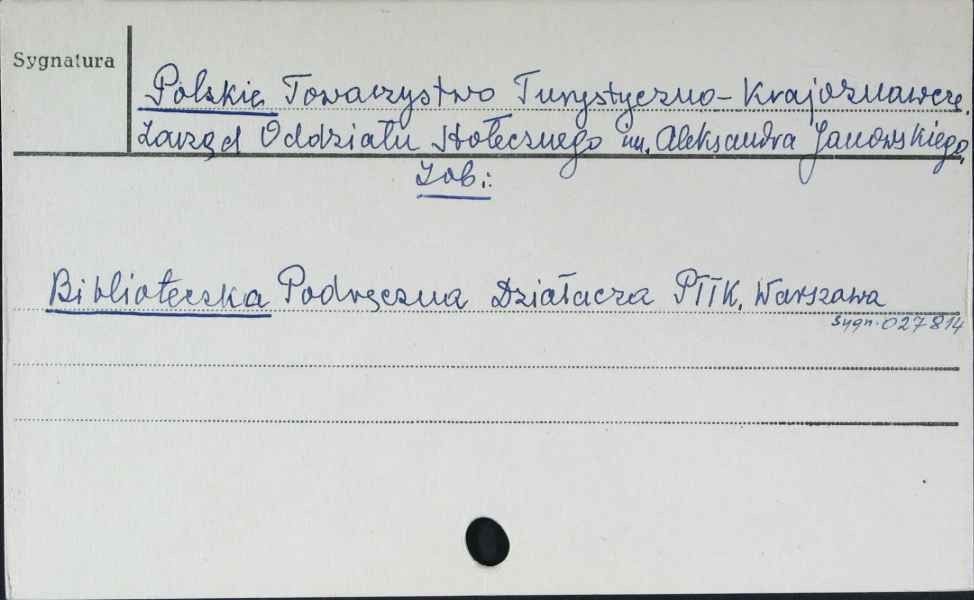 Sygnatura
Polskie Towarzystwo Turystyczno-Krajoznawcze.
Zarząd Oddziału Stołecznego im. Aleksandra Janowskiego.
Zob.:
Biblioteczka Podręczna Działacza PTTK, Warszawa
Sygn. 027814